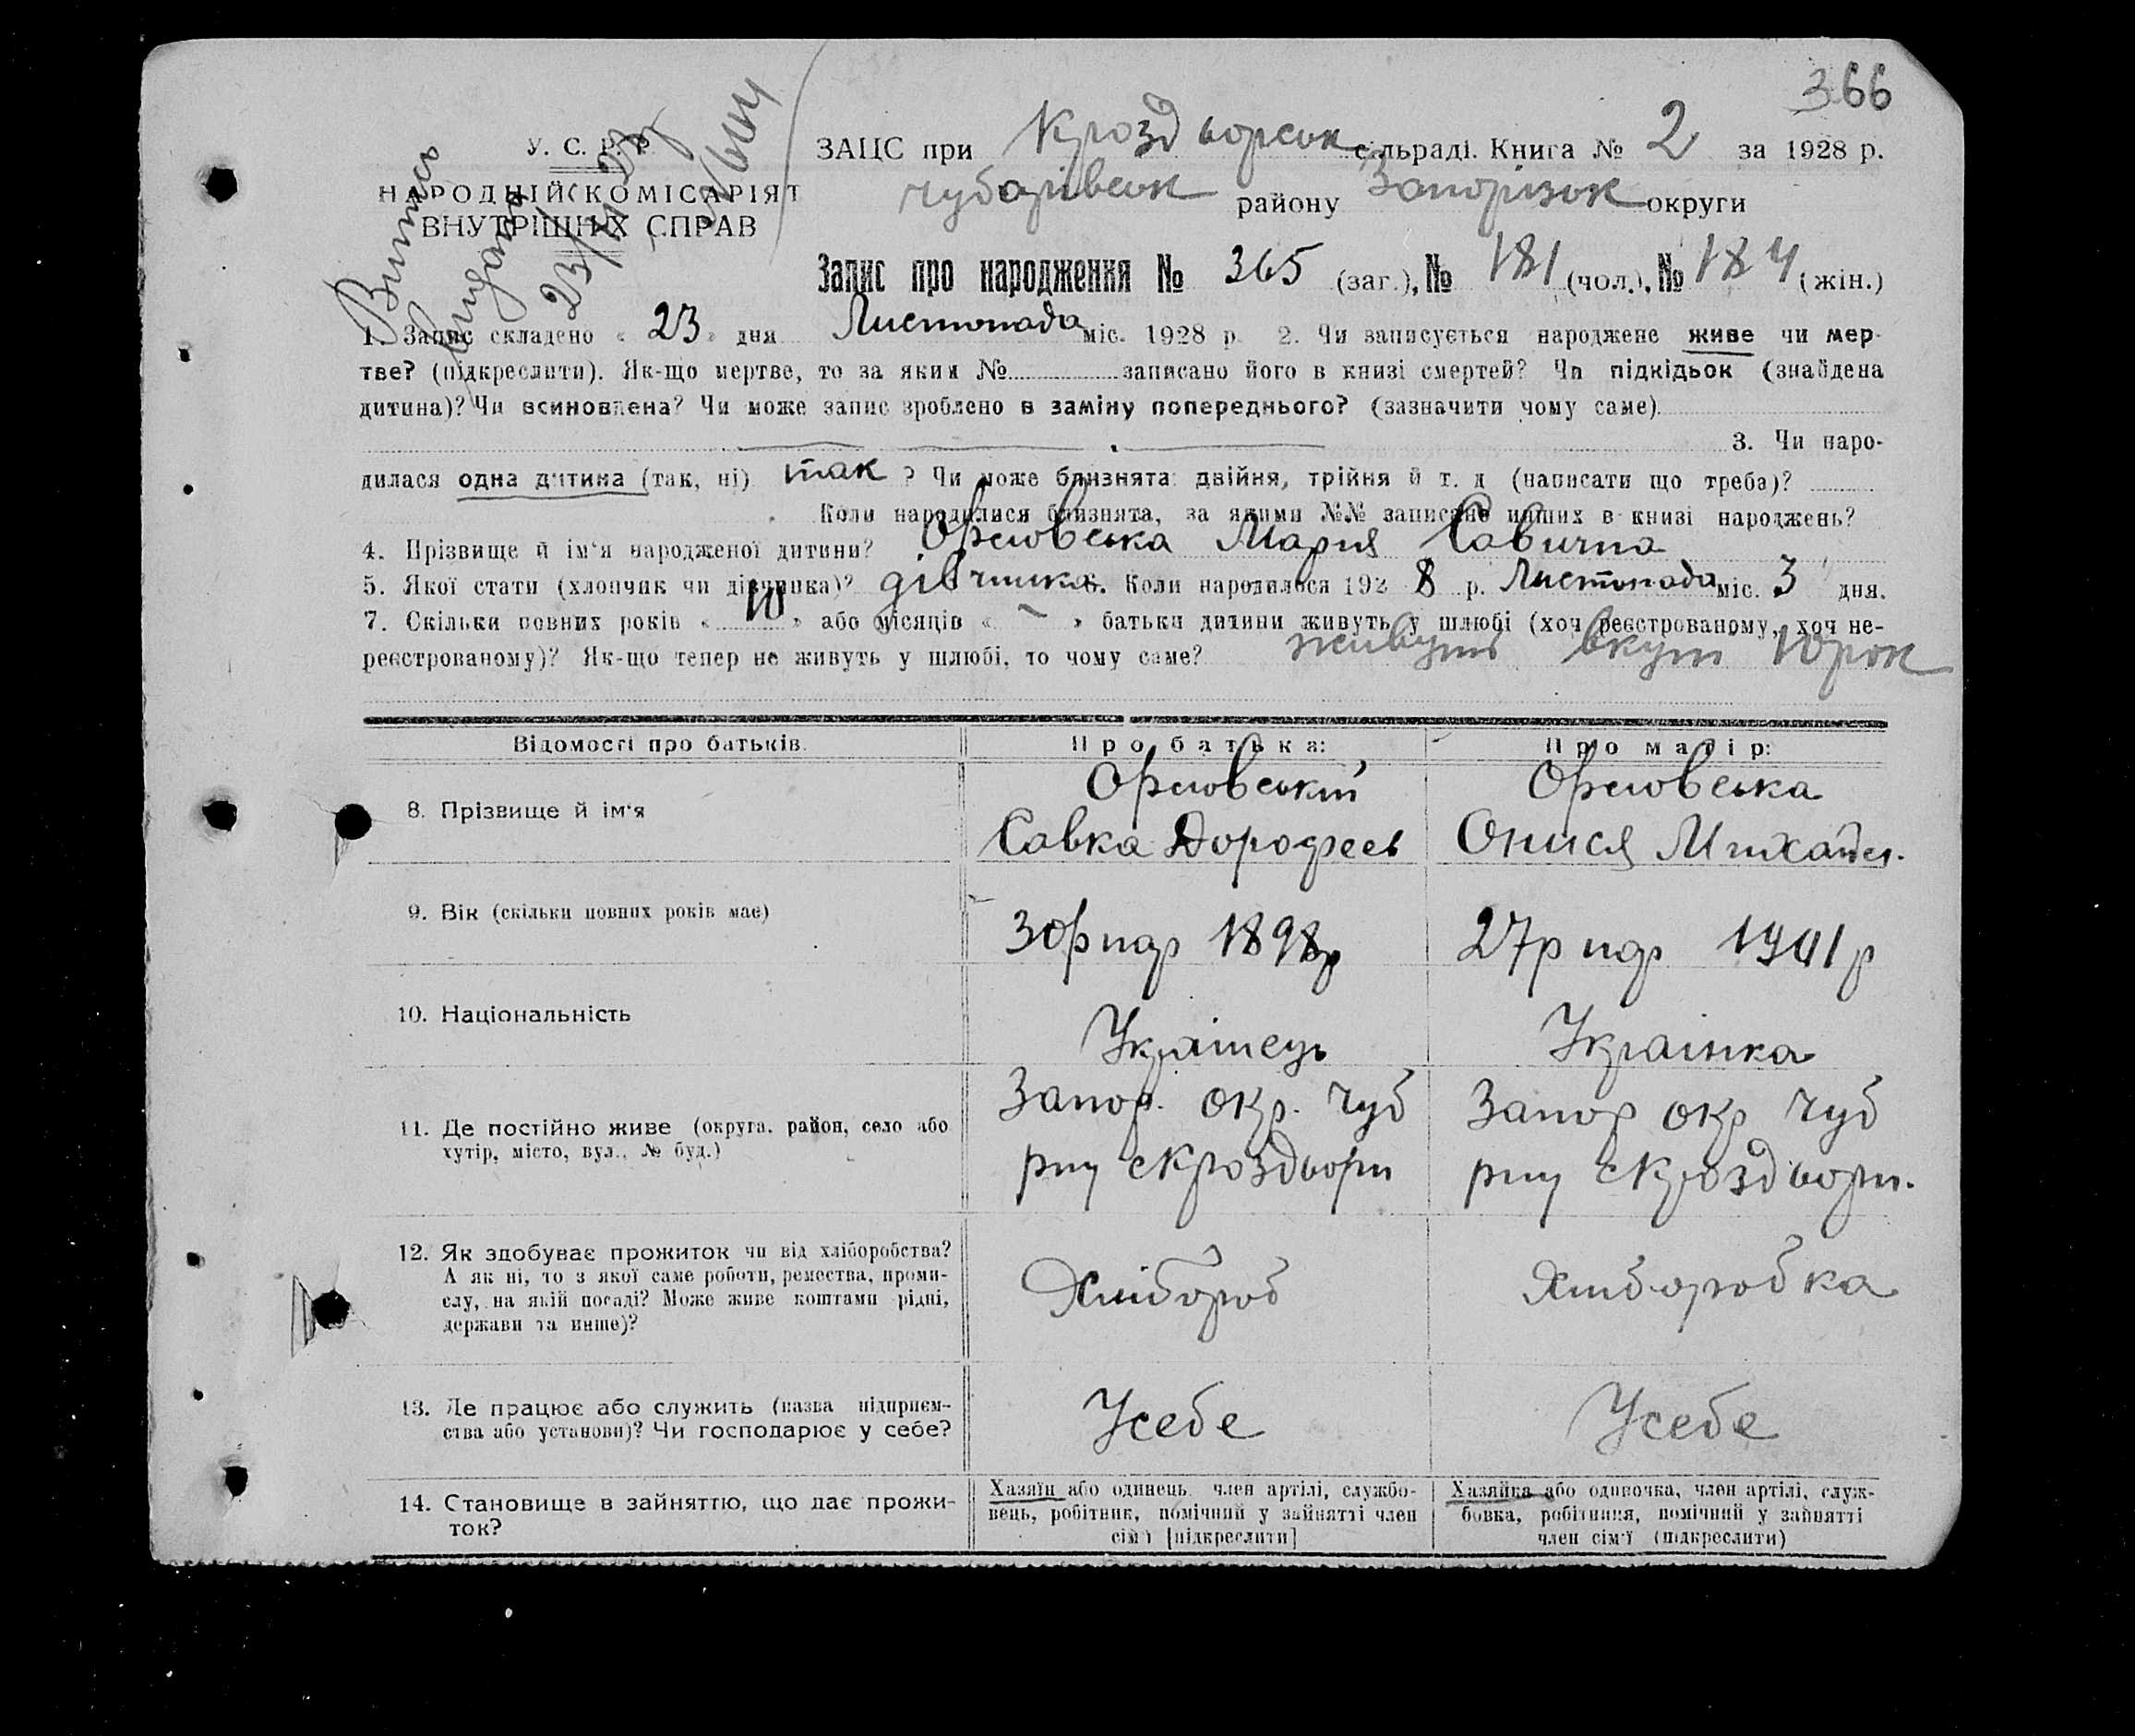 366
У. С. Р. Р.
НАРОДНІЙ КОМІСАРІЯТ
ВНУТРІШНІХ СПРАВ
Випись
видана
23/
ЗАЦС при Кроздворськ сільраді. Книга № 2 за 1928 р.
Чубарівськ району Запорізьк округи
Запис про народження № 365 (заг.), № 181 (чол.), № 184 (жін.)
1. Запис складено « 23 » дня Листопада міс. 1928 р. 2. Чи записується народжене живе чи мер-
тве? (підкреслити). Як-що мертве, то за яким № записано його в книзі смертей? Чи підкідьок (знайдена
дитина)? Чи всиновлена? Чи може запис зроблено в заміну попереднього? (зазначити чому саме)
3. Чи наро-
дилася одна дитина (так, ні) так ? Чи може близнята: двійня, трійня й т. д. (написати що треба)?
Коли народилися близнята, за якими №№ записано инших в книзі народжень?
4. Прізвище й ім'я народженої дитини? Орловська Мария Савична
5. Якої стати (хлопчик чи дівчинка)? дівчинка 6. Коли народилося 1928 р. Листопада міс. 3 дня.
7. Скільки повних років « 10 » або місяців « - » батьки дитини живуть у шлюбі (хоч реєстрованому, хоч не-
реєстрованому)? Як-що тепер не живуть у шлюбі, то чому саме? живуть вкупі 10 рок
Відомості про батьків. Про батька: Про матір:
8. Прізвище й ім'я Орловський Орловська
Савка Дорофеев Онися Михайл.
9. Вік (скільки повних років має) 30р нар 1898р 27р нар 1901р
10. Національність Українець Українка
11. Де постійно живе (округа, район, село або
хутір, місто, вул., № буд.)
Запор. окр. Чуб Запор окр Чуб
рну с Кроздвори рну с Кроздвори.
12. Як здобуває прожиток чи від хліборобства?
А як ні, то з якої саме роботи, ремества, проми-
слу, на якій посаді? Може живе коштами рідні,
держави та инше)?
Хлібороб Хлиборобка
13. Де працює або служить (назва підприєм-
ства або установи)? Чи господарює у себе?
Усебе Усебе
14. Становище в зайняттю, що дає прожи-
ток?
Хазяїн або одинець, член артілі, службо-
вець, робітник, помічний у зайнятті член
сім'ї [підкреслити]
Хазяйка або одиночка, член артілі, служ-
бовка, робітниця, помічний у зайнятті
член сім'ї (підкреслити)